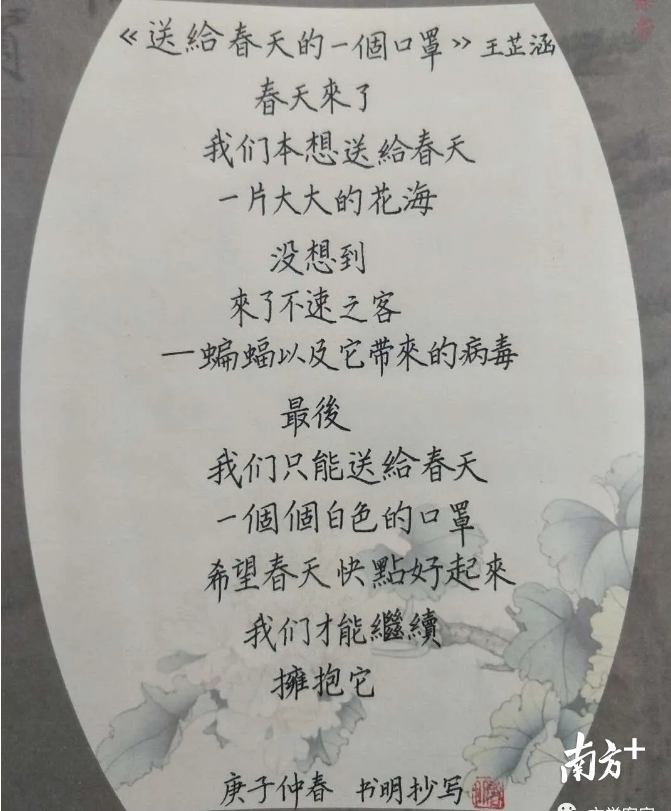 《送給春天的一個口罩》王芷涵
春天來了
我们本想送給春天
一片大大的花海
没想到
來了不速之客
一蝙蝠以及它帶來的病毒
最後
我们只能送給春天
一個個白色的口罩
希望春天快點好起來
我们才能繼續
擁抱它
庚子仲春 书明抄写
南方+